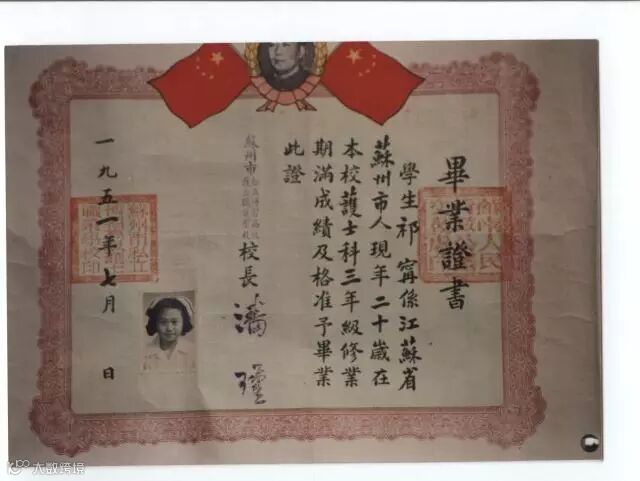 畢業證書
學生祁寗係江蘇省
蘇州市人現年二十歲在
本校護士科三年級修業
期滿成績及格准予畢業
此證
蘇州市
校長
潘
一九五一年七月 日
大数跨境